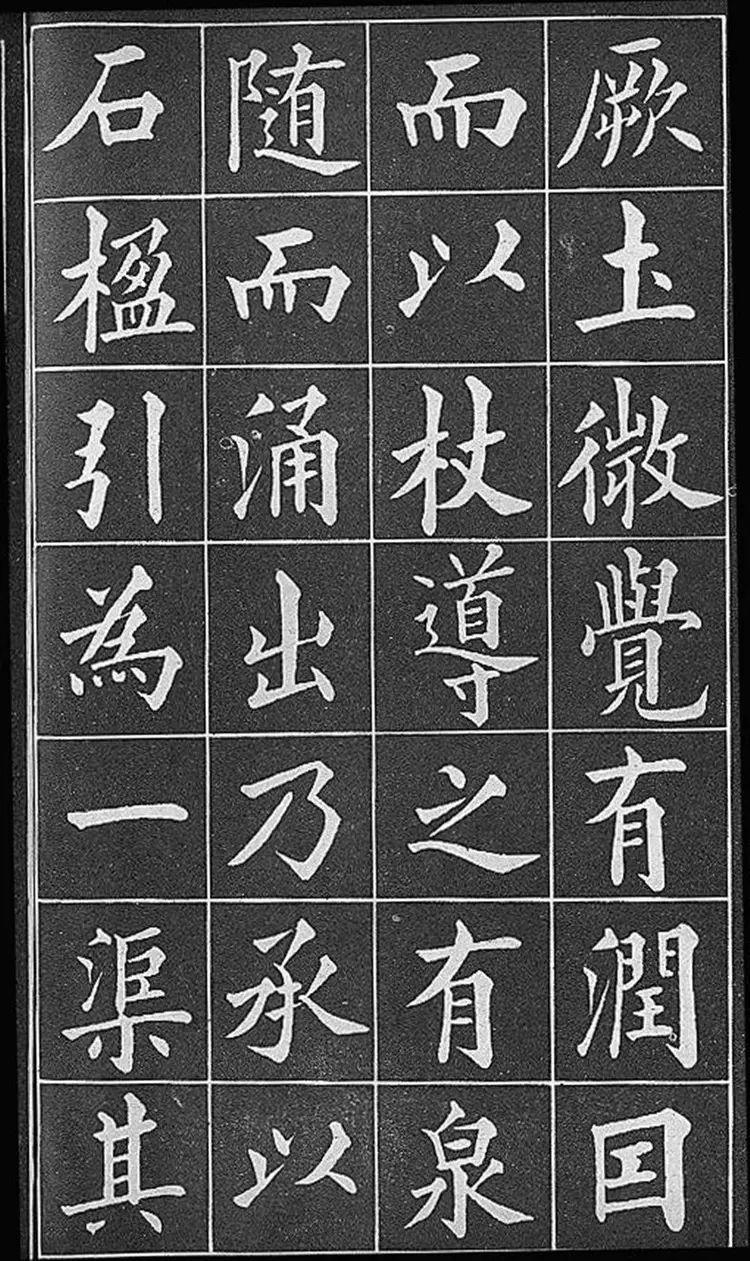 厥圡微覺有潤囙
而以杖導之有泉
隨而涌出乃承以
石楹引為一渠其